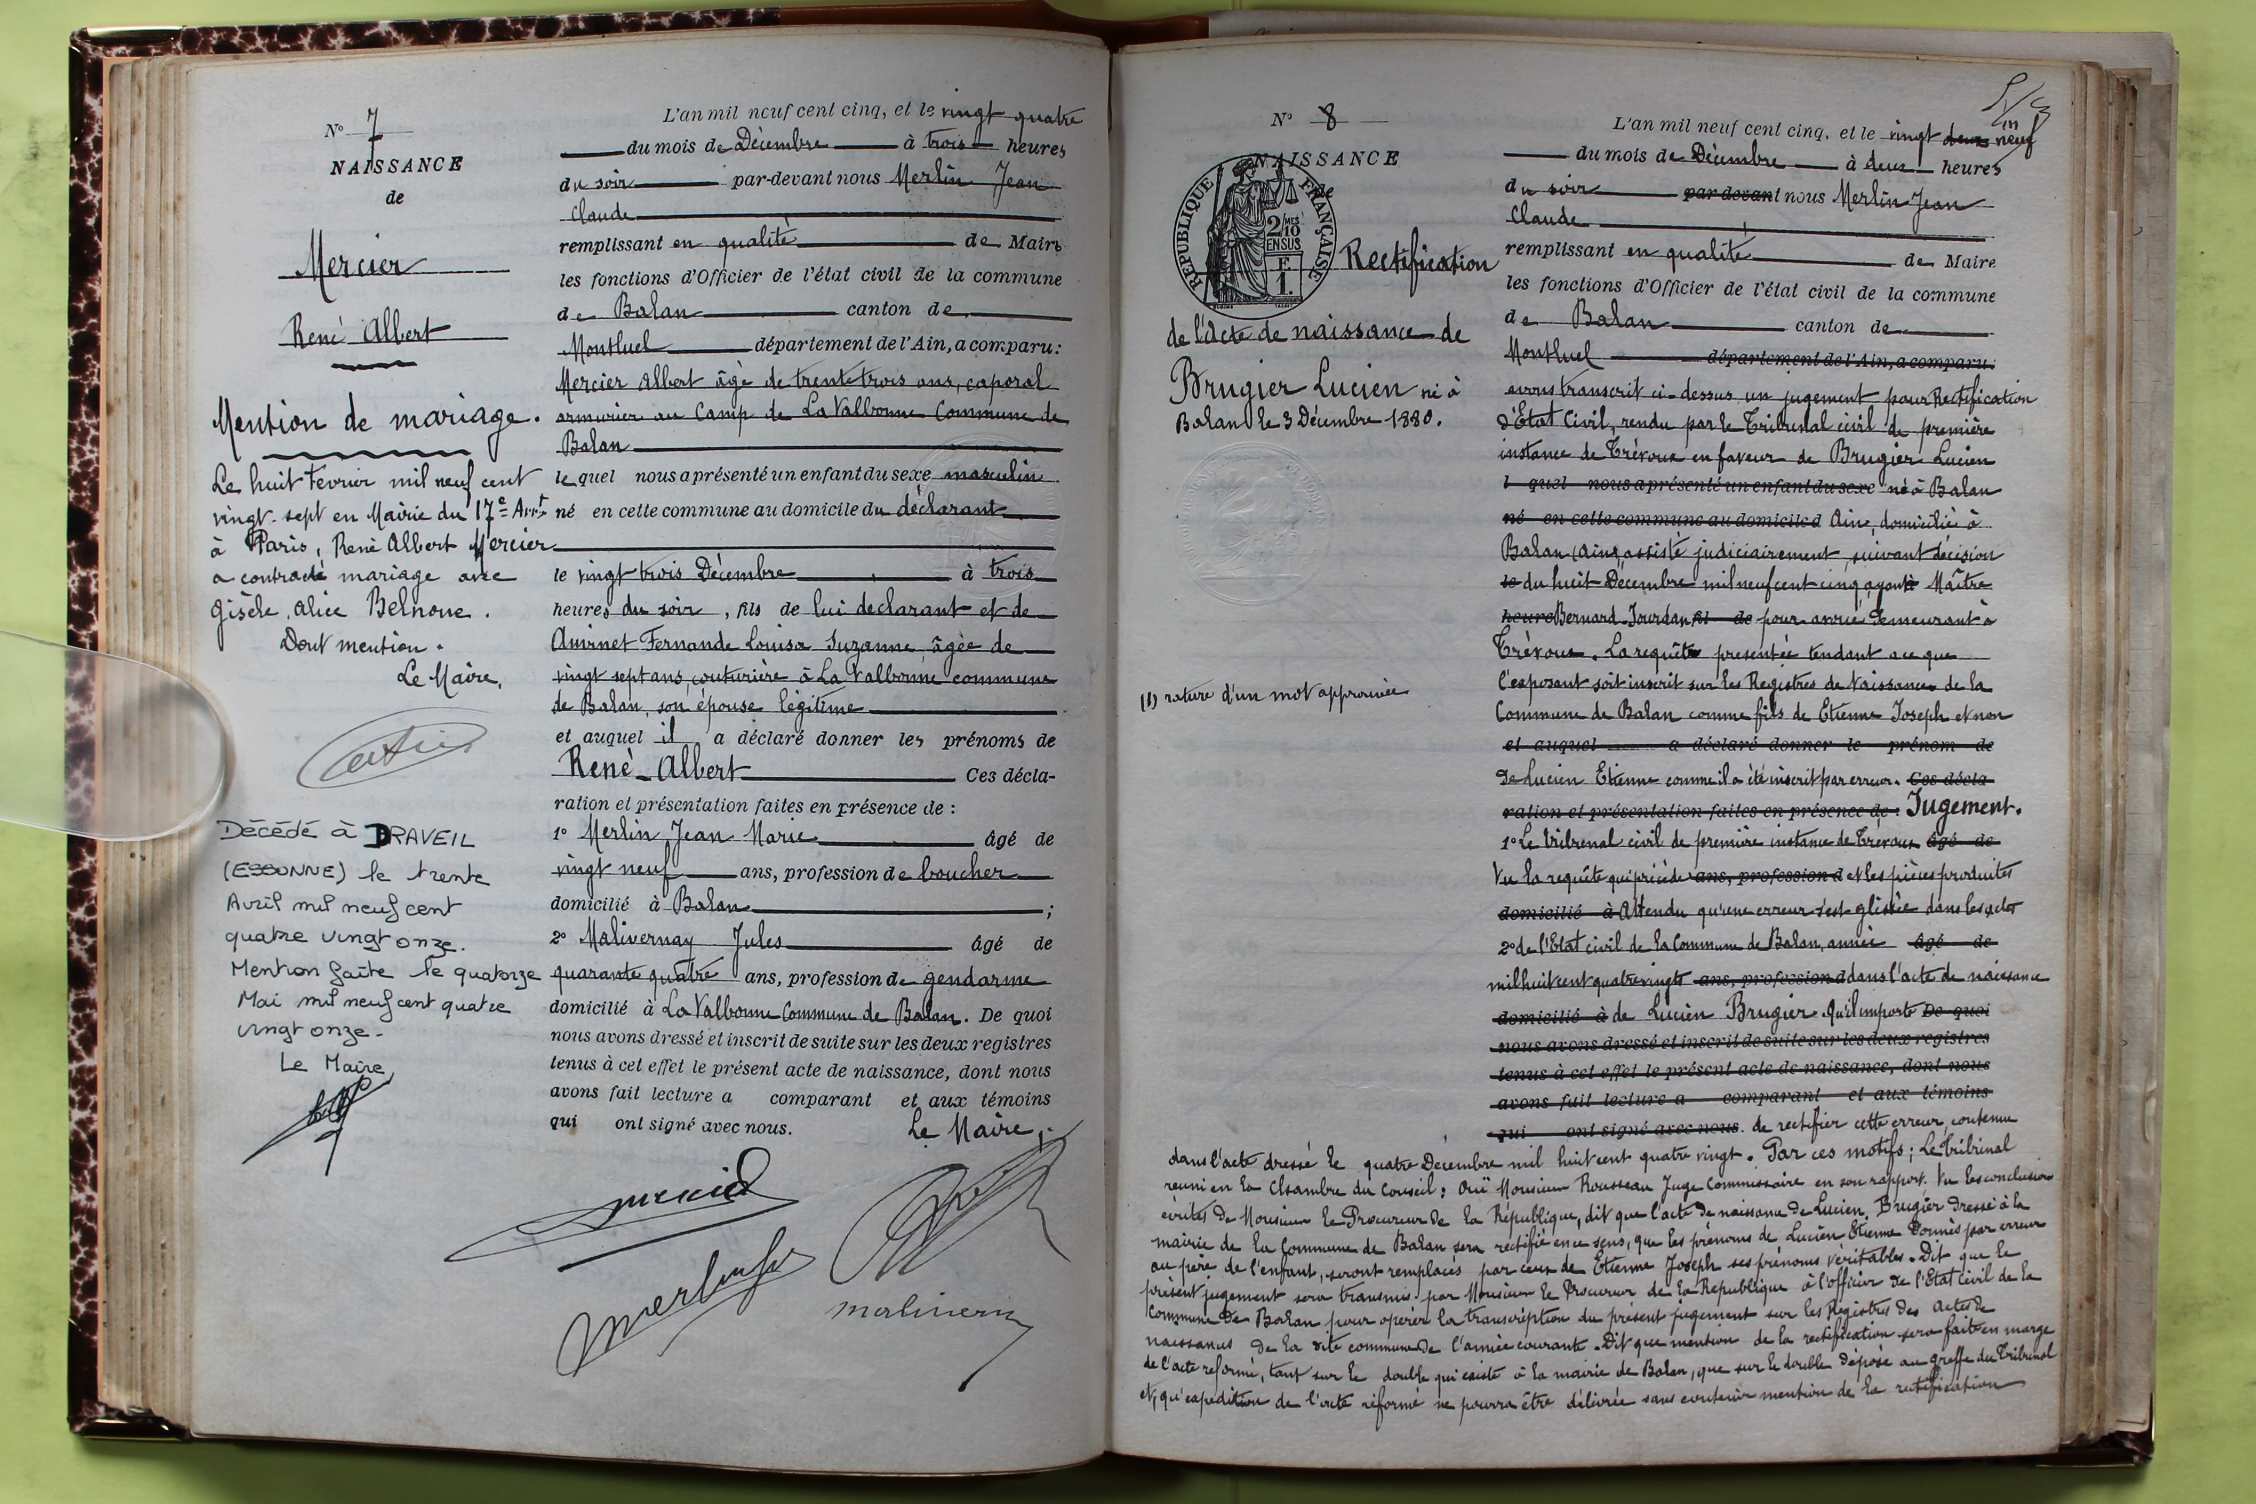 N° 7
NAISSANCE
de
Mercier
René Albert
Mention de mariage.
Le huit Février mil neuf cent
vingt-sept en Mairie du 17e Arrt
à Paris, René Albert Mercier
a contracté mariage avec
Gisèle, Alice Belnoue.
Dont mention.
Le Maire,
Décédé à DRAVEIL
(ESSONNE) le trente
Avril mil neuf cent
quatre vingt onze.
Mention faite le quatorze
Mai mil neuf cent quatre
vingt onze.
Le Maire,
L'an mil neuf cent cinq, et le vingt quatre
du mois de Décembre à trois heures
du soir par-devant nous Merlin Jean
Claude
remplissant en qualité de Maire
les fonctions d'Officier de l'état civil de la commune
de Balan canton de
Montluel département de l'Ain, a comparu:
Mercier Albert âgé de trente trois ans, caporal
armurier au Camp de La Valbonne Commune de
Balan
le quel nous a présenté un enfant du sexe masculin
né en cette commune au domicile du déclarant
le vingt trois Décembre à trois
heures du soir, fils de lui déclarant et de
Fernande Louisa Suzanne âgée de
vingt sept ans, couturière à La Valbonne commune
de Balan, son épouse légitime
et auquel il a déclaré donner les prénoms de
René-Albert Ces décla-
ration et présentation faites en présence de :
1° Merlin Jean Marie âgé de
vingt neuf ans, profession de boucher
domicilié à Balan ;
2° Malivernay Jules âgé de
quarante quatre ans, profession de gendarme
domicilié à La Valbonne Commune de Balan. De quoi
nous avons dressé et inscrit de suite sur les deux registres
tenus à cet effet le présent acte de naissance, dont nous
avons fait lecture a comparant et aux témoins
qui ont signé avec nous.
Le Maire,
N° 8
NAISSANCE
de
REPUBLIQUE FRANÇAISE
2/10 MES
EN SUS
F
1.
Rectification
de l'Acte de naissance de
Brugier Lucien né à
Balan le 3 Décembre 1880.
(1) rature d'un mot approuvée
L'an mil neuf cent cinq, et le vingt deux neuf
du mois de Décembre à deux heures
du soir par devant nous Merlin Jean
Claude
remplissant en qualité de Maire
les fonctions d'Officier de l'état civil de la commune
de Balan canton de
Montluel département de l'Ain, a comparu:
avons transcrit ci-dessus un jugement pour Rectification
d'Etat Civil, rendu par le Tribunal civil de première
instance de Trévoux en faveur de Brugier Lucien
l quel nous a présenté un enfant du sexe né à Balan
né en cette commune au domicile d Ain, domicilié à
Balan (Ain) assisté judiciairement, suivant décision
le du huit Décembre mil neuf cent cinq, ayant à Maître
heure Bernard-Jourdan fil de pour avoué demeurant à
Trévoux. La requête présentée tendant a ce que
l'exposant soit inscrit sur les Registres de Naissances de la
Commune de Balan comme fils de Etienne Joseph et non
et auquel a déclaré donner le prénom de
de Lucien Etienne comme il a été inscrit par erreur. Ces décla
ration et présentation faites en présence de : Jugement.
1° Le tribunal civil de première instance de Trévoux âgé de
Vu la requête qui précède ans, profession d et les pièces produites
domicilié à Attendu qu'une erreur s'est glissée dans les actes
2° de l'Etat civil de la Commune de Balan, année âgé de
mil huit cent quatre vingts ans, profession d dans l'acte de naissance
domicilié à de Lucien Brugier. Qu'il importe De quoi
nous avons dressé et inscrit de suite sur les deux registres
tenus à cet effet le présent acte de naissance, dont nous
avons fait lecture a comparant et aux témoins
qui ont signé avec nous. de rectifier cette erreur, contenue
dans l'acte dressé le quatre Décembre mil huit cent quatre vingt. Par ces motifs; Le Tribunal
réuni en la Chambre du Conseil; Ouï Monsieur Rousseau Juge Commissaire en son rapport. Vu les conclusions
écrites de Monsieur le Procureur de la République, dit que l'acte de naissance de Lucien Brugier dressé à la
mairie de la Commune de Balan sera rectifié en ce sens, que les prénoms de Lucien Etienne donnés par erreur
au père de l'enfant, seront remplacés par ceux de Etienne Joseph ses prénoms véritables. Dit que le
présent jugement sera transmis par Monsieur le Procureur de la République à l'officier de l'Etat civil de la
Commune de Balan pour opérer la transcription du présent jugement sur les Registres des Actes de
naissances de la dite commune de l'année courante. Dit que mention de la rectification sera faite en marge
de l'acte réformé, tant sur le double qui existe à la mairie de Balan, que sur le double déposé au greffe du Tribunal
et, qu'expédition de l'acte réformé ne pourra être délivrée sans contenir mention de la rectification